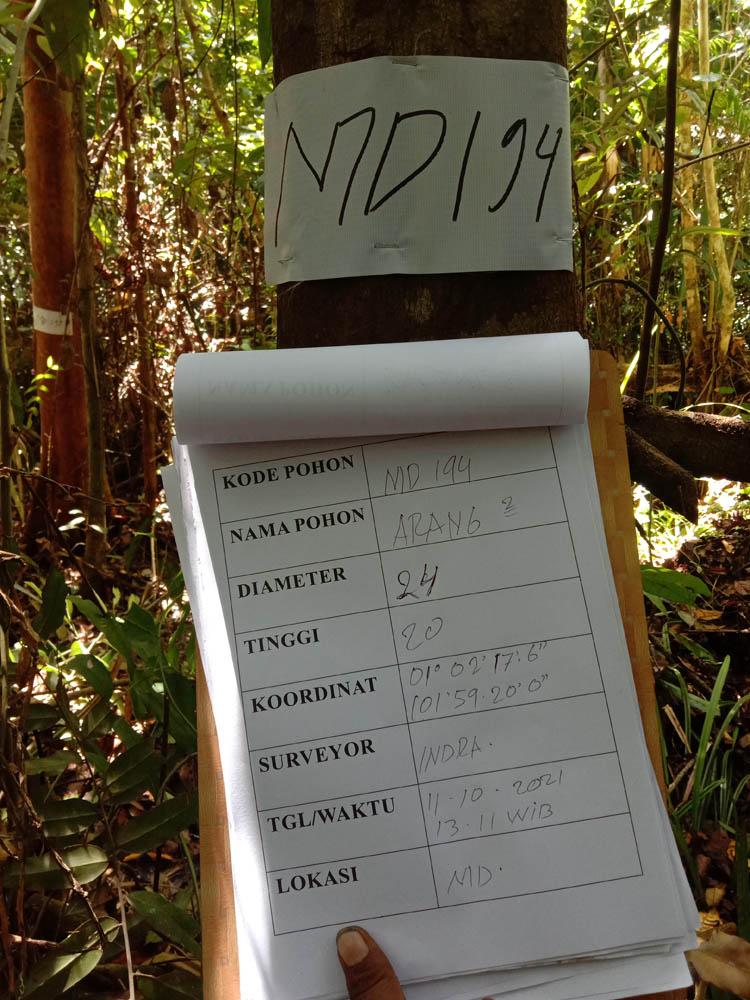 MD 194
KODE POHON MD 194
NAMA POHON ARANG 2
DIAMETER 24
TINGGI 20
KOORDINAT 01° 02' 17.6"
101° 59. 20' 0"
SURVEYOR INDRA.
TGL/WAKTU 11-10-2021
13.11 WIB
LOKASI MD.